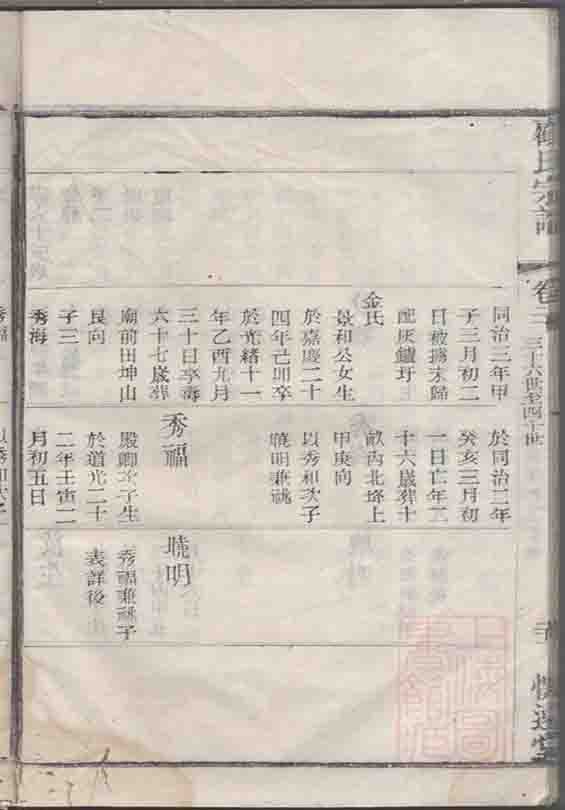 氏宗譜
卷二
三十六世至四十世
同治二年甲
子三月初二
日被擄未歸
配灰鎮圩
金氏
景和公女生
於嘉慶二十
四年己卯卒
於光緒十一
年乙酉九月
三十日卒壽
六十七歲葬
廟前田坤山
艮向
子三
秀海
於同治二年
癸亥三月初
一日亡年二
十六歲葬十
畝西北埼上
甲庚向
以秀和次子
曉明兼祧
秀福
殿卿次子生
於道光二十
二年壬寅二
月初五日
曉明
秀福兼祧子
表詳後
秀福
以秀和次子